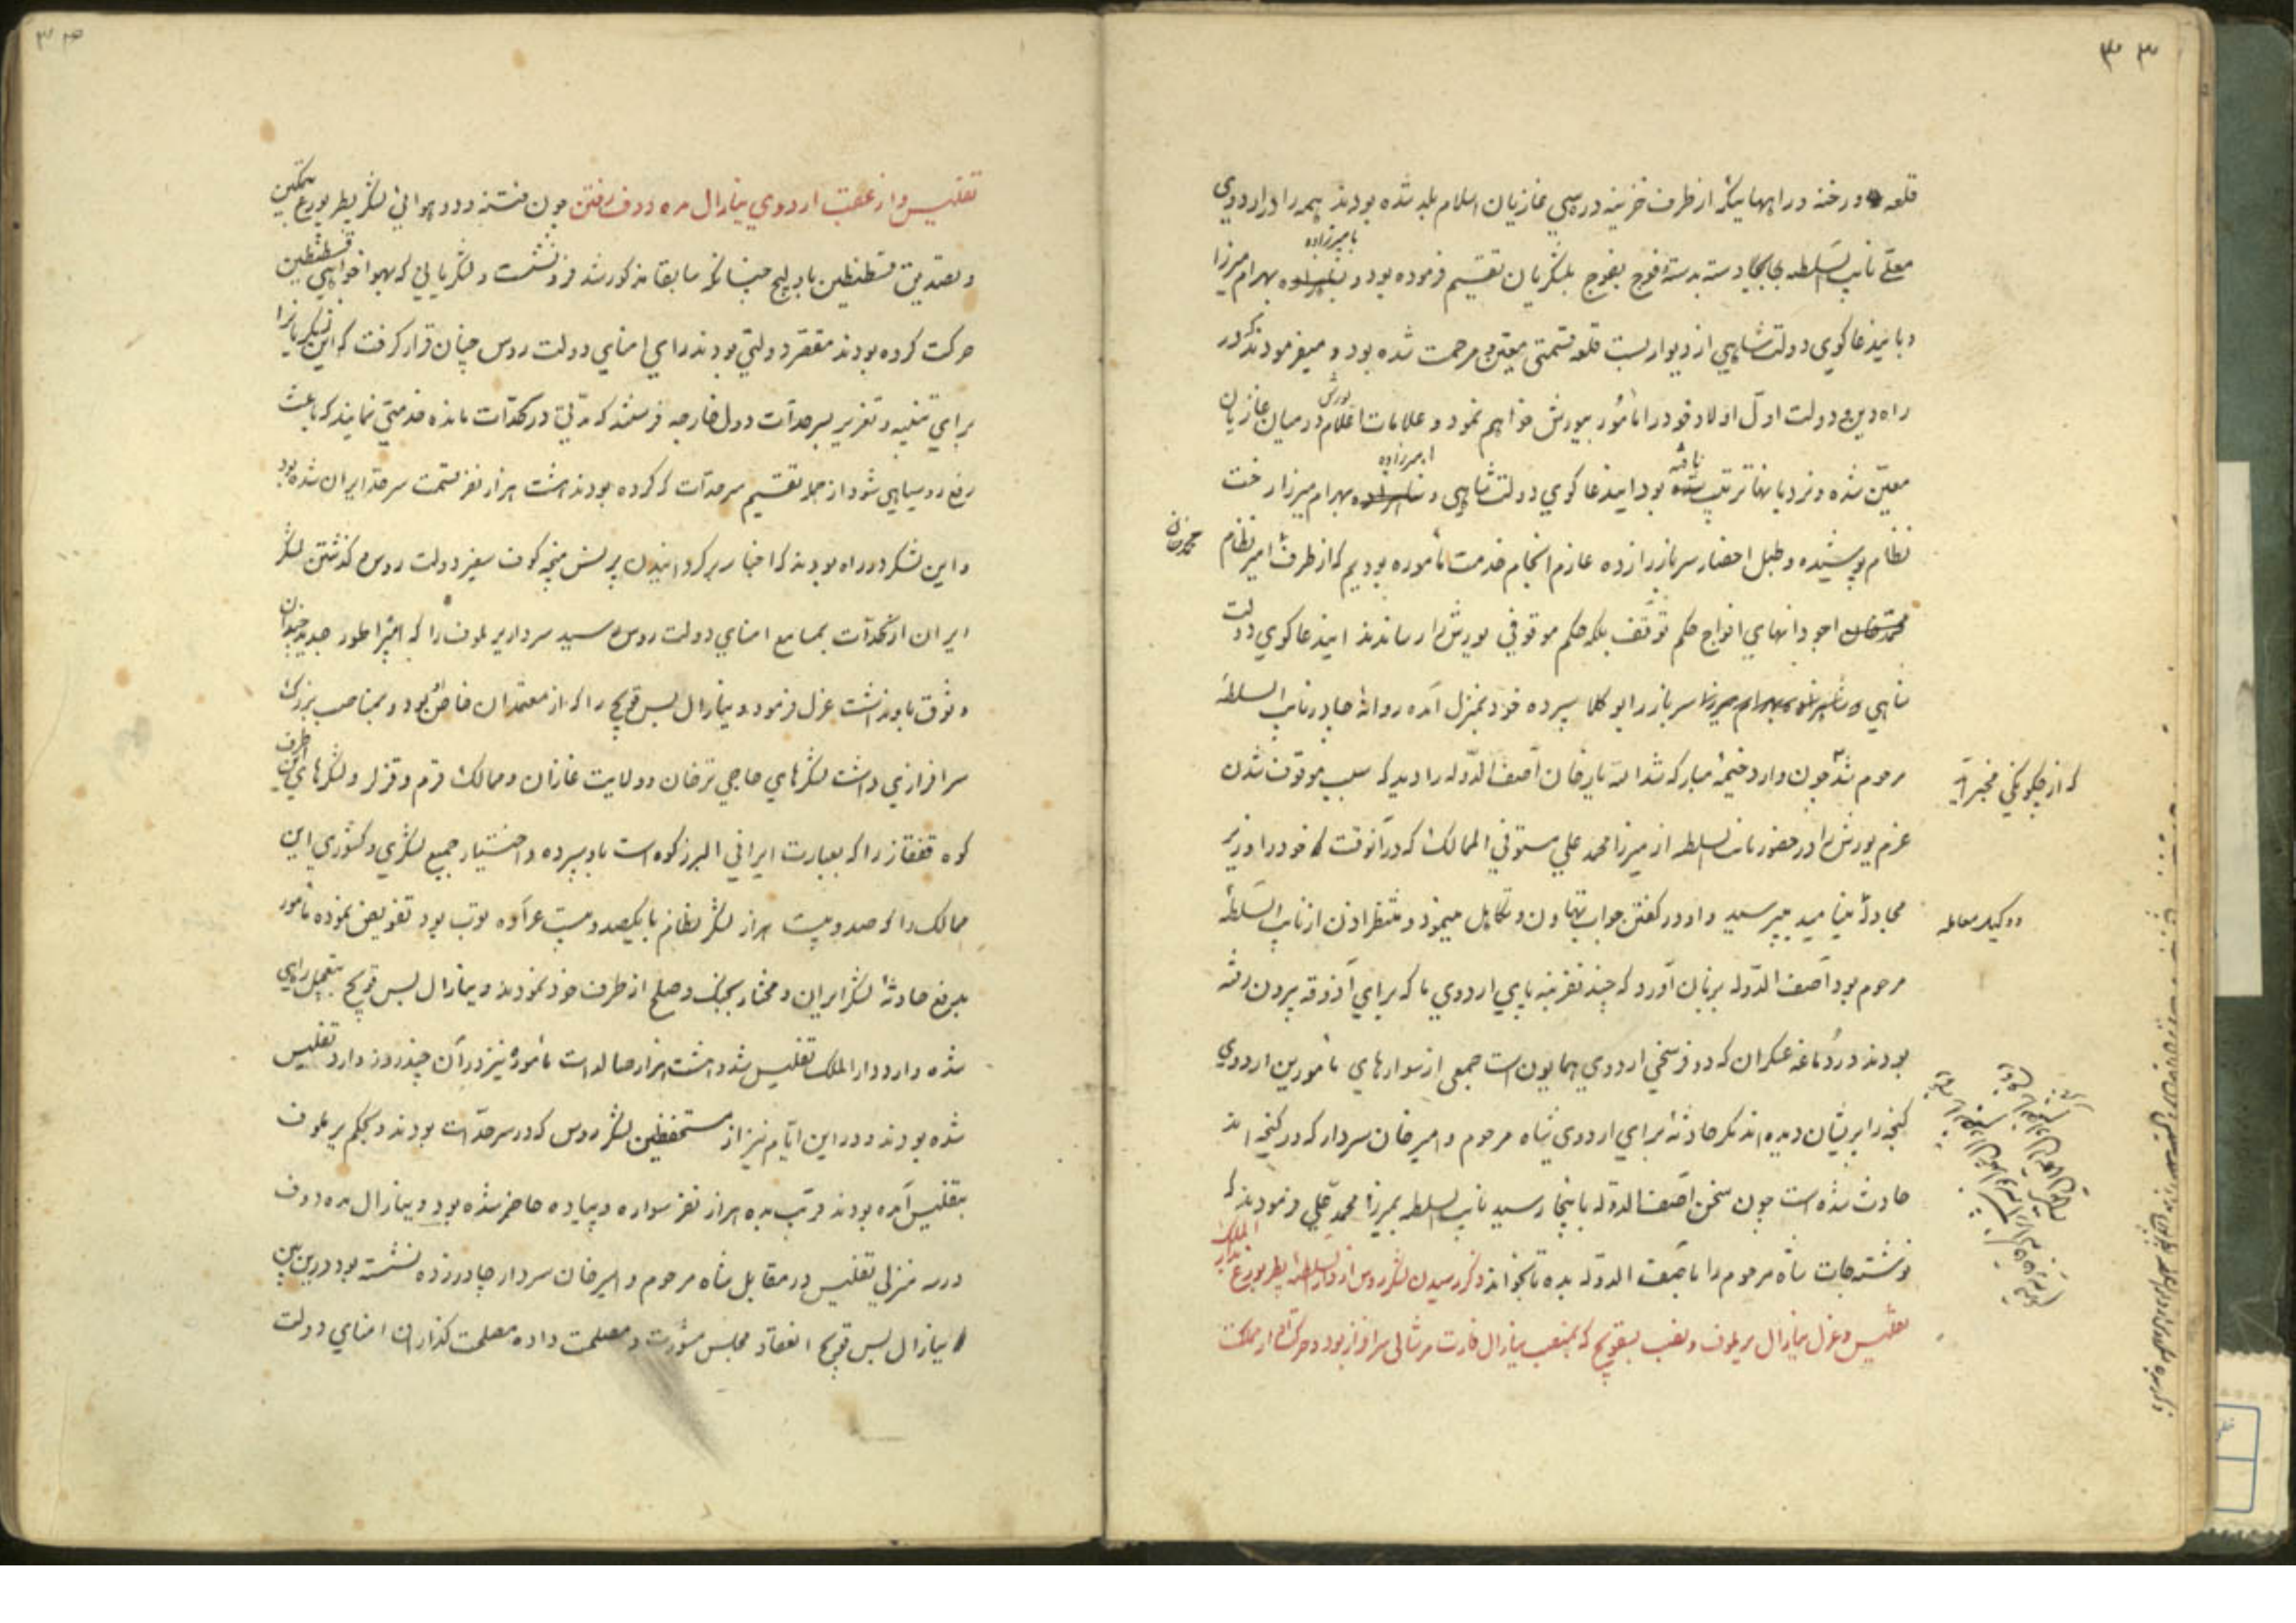 ۳۳
قلعه و رخنه در راههائیکه از طرف خزینه درسی بغازیان اسلام بلد شده بودند همه را در اردوی
بامیرزاده
معلّی نایب السلطنه بجابجا دسته بدسته و فوج بفوج بلشگریان تقسیم فرموده بود و بهرام میرزا
و باینداعاگوی دولت شاهی از دیوار بست قلعه قسمتی معین و مرحمت شده بود و میفرمودند که در
راه دین و دولت اول اولاد خود را مأمور بیورش خواهم نمود و علامات اعلام یورش در میان غازیان
معیّن شده و نردبانها ترتیب یافته بود ایندعاگوی دولت شاهی و امیرزاده بهرام میرزا رخت
نظام پوشیده و طبل احضار سرباز را زده عازم انجام خدمت مأموره بودیم که از طرف امیر نظام
محمد خان
اجودانهای افواج حکم توقف بلکه حکم موقوفی یورش را رساندند ایندعاگوی دولت
شاهی سرباز را بوکلا سپرده خود بمنزل آمده روانهٔ چادر نایب السلطنه
مرحوم شد چون وارد خیمهٔ مبارکه شد الله یار خان آصف الدوله را دید که سبب موقوف شدن
که از چگونگی مخبر
عزم یورش را در حضور نایب السلطنه از میرزا محمد علی مستوفی الممالک که در آنوقت خود را وزیر
مجادله مینامید میپرسید و او در گفتن جواب تهاون و تکاهل مینمود و منتظر اذن از نایب السلطنه
مرحوم بود آصف الدوله بر زبان آورد که چند نفر بنه پای اردوی ما که برای آذوقه بیرون رفته
بودند در دماغه عسکران که دو فرسخی اردوی همایون است جمعی از سوارهای مأمورین اردوی
گنجه را پریشان دیده اند مگر حادثهٔ برای اردوی شاه مرحوم و امیر خان سردار که در گنجه اند
حادث شده است چون سخن آصف الدوله باینجا رسید نایب السلطنه بمیرزا محمد علی فرمودند که
نوشتجات شاه مرحوم را بآصف الدوله بده تا بخواند ذکر رسیدن لشگر روس از دار السلطنه پطربورغ بدار الملک
تفلیس و عزل ینارال یرملوف و نصب بسقویچ که بمنصب ینارال فارت مرشالی سرافراز بود و حرکت از مملکت
۳۴
تفلیس و از عقب اردوی ینارال مددوف رفتن چون فتنه و دو هوائی لشگر پطربورغ بتمکین
و تصدیق قسطنطین باولیج چنانکه سابقا مذکور شد فرو نشست و لشگریانی که بهوا خواهی قسطنطین
حرکت کرده بودند مقصر دولتی بودند رای امنای دولت روس چنان قرار گرفت که این لشگریانرا
برای تنبیه و تعزیر بسرحدّات دول خارجه فرستند که مدّتی در سرحدّات مانده خدمتی نمایند که باعث
رفع روسیاهی شود از جمله تقسیم سرحدّات که کرده بودند هشت هزار نفر قسمت سرحد ایران شده بود
و این لشگر در راه بودند که اخبار برگردانیدن پرنس منچیکوف سفیر دولت روس و گذشتن لشگر
ایران از سرحدّات بمسامع امنای دولت روس رسید سردار یرملوف را که امپراطور جدید چندان
وثوق باو نداشت عزل فرمود و ینارال بسقویچ را که از معتمدان خاص او بود و بمناصب بزرگ
سرافرازی داشت لشگرهای حاجی ترخان و ولایت غازان و ممالک قرم و قزلر و لشگرهای این طرف
کوه قفقاز را که بعبارت ایرانی البرز کوه است باو سپرده و اختیار جمیع لشگری و کشوری این
ممالک را که صد و بیست هزار لشگر نظام با یکصد و بیست عراده توپ بود تفویض نموده مأمور
بدفع حادثهٔ لشگر ایران و مختار بجنگ و صلح از طرف خود نمودند و ینارال بسقویچ بتعجیل راهی
شده وارد دار الملک تفلیس شد و هشت هزار صالدات مأموره نیز در آن چند روز وارد تفلیس
شده بودند و در این ایّام نیز از مستحفظین لشگر روس که در سرحدّات بودند و بحکم یرملوف
بتفلیس آمده بودند قریب بده هزار نفر سواره و پیاده حاضر شده بود و ینارال مددوف
در سه منزلی تفلیس در مقابل شاه مرحوم و امیر خان سردار چادر زده نشسته بود در این بین
ینارال بسقویچ انعقاد مجلس مشورت و مصلحت داده مصلحت گذاران امنای دولت